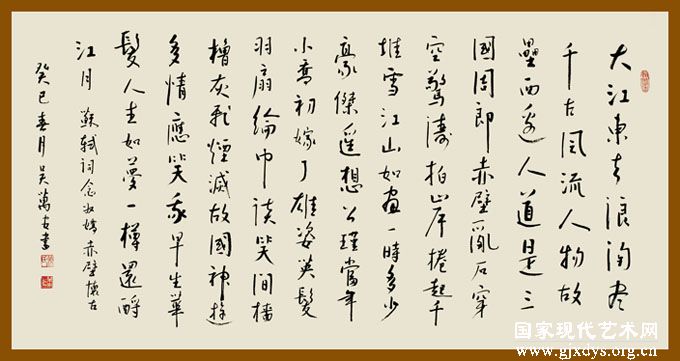 大江東去浪淘尽
千古風流人物故
壘西邊人道是三
國周郎赤壁亂石穿
空驚濤拍岸捲起千
堆雪江山如画一時多少
豪傑遥想公瑾當年
小喬初嫁了雄姿英髮
羽扇綸巾談笑間檣
櫓灰飛煙滅故國神遊
多情應笑我早生華
髮人生如夢一樽還酹
江月 蘇軾詞念奴嬌赤壁懷古
癸巳春月吳萬書
国家现代艺术网
www.gjxdys.org.cn